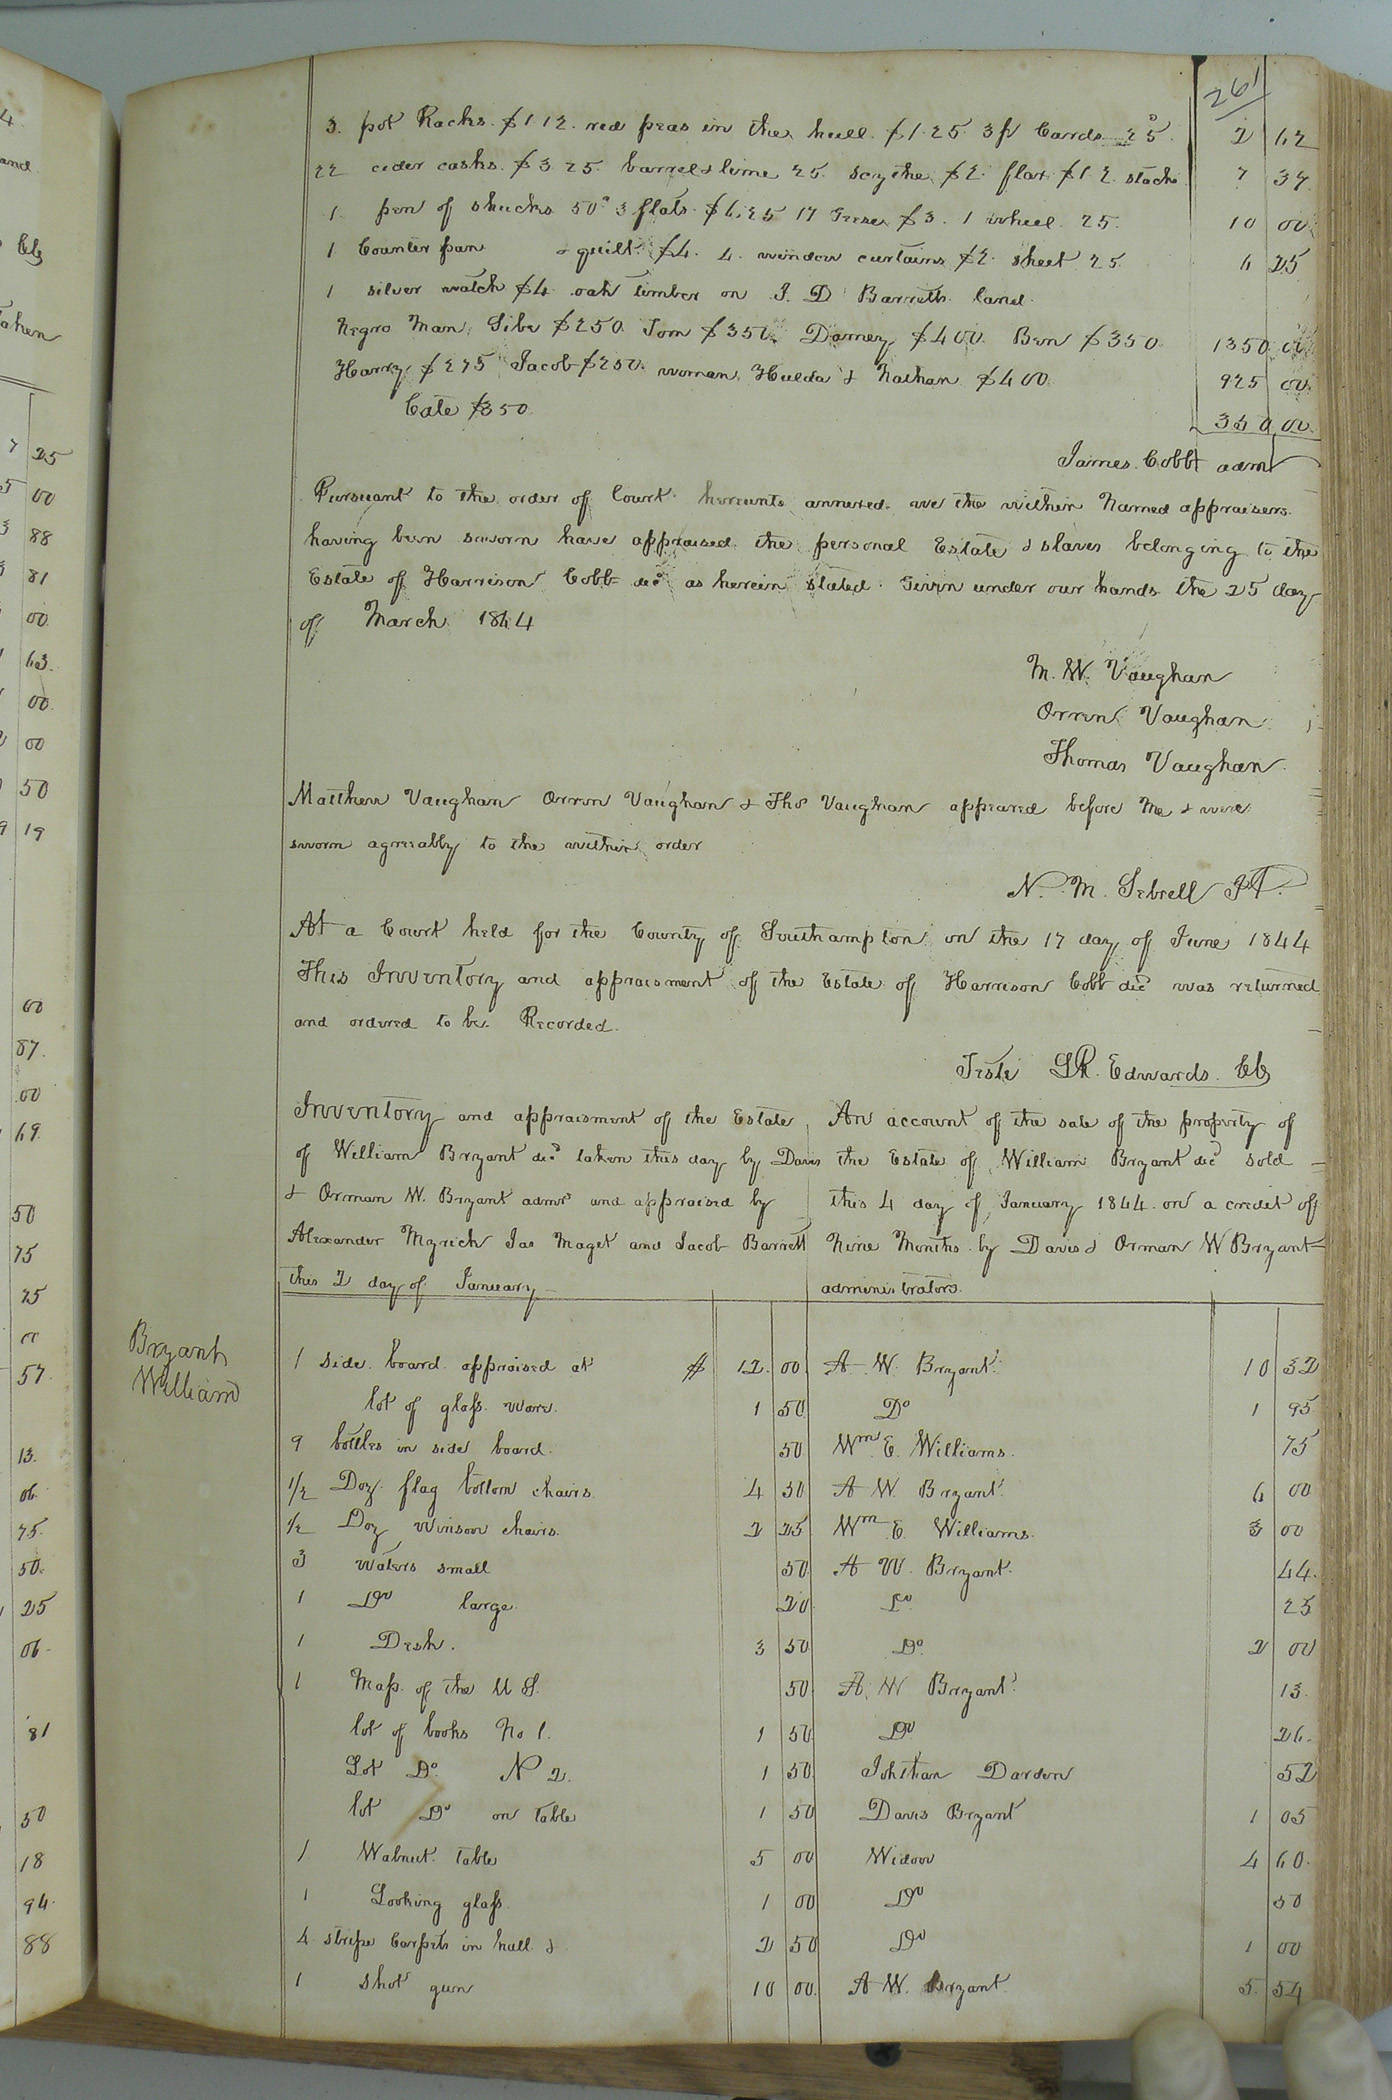 261
3. pot Racks. $1.12. red peas in the hull $1.25. 3 pr Cards 25 2 62
22 cider casks. $3.25. barrel & lime 25. scythe $2. flax $1 2. stacks 7 37
1. pen of shucks 50c 3 flats. $6.25 17 Geese $3. 1 wheel. 25. 10 00
1 Counter pan & quilt $4. 4. window curtains $2. sheet 25 6 25
1 silver watch $4. oak timber on J. D Barretts land.
Negro Man, Sibe $250. Tom $350. Damey $400. Ben $350 1350 00
Harry $275 Jacob $250. woman, Hulda & Nathan $400 925 00
Cate $350. 350 00.
James Cobb adm
Pursuant to the order of Court hereunto annexed. we the within Named appraisers.
having been sworn have appraised the personal Estate & slaves belonging to the
Estate of Harrison Cobb decd as herein stated. Given under our hands the 25 day
of March 1844
M. W. Vaughan
Orren Vaughan
Thomas Vaughan.
Matthew Vaughan Orren Vaughan & Thos Vaughan appeared before Me & were
sworn agreeably to the within order
N. M. Sebrell JP.
At a Court held for the County of Southampton on the 17 day of June 1844
This Inventory and appraisment of the Estate of Harrison Cobb decd was returned
and ordered to be Recorded.
Teste LR. Edwards. CC
Inventory and appraisment of the Estate
of William Bryant decd taken this day by Davis
& Orman W. Bryant admrs and appraised by
Alexander Myrick Jas Maget and Jacob Barrett
this 2 day of January
An account of the sale of the property of
the Estate of William Bryant decd sold
this 4 day of January 1844. on a credit off
Nine Months. by Davis & Orman W Bryant
administrators.
Bryant
William
1 side. board. appraised at $ 12. 00 A. W. Bryant. 10 32
lot of glass ware. 1 50 Do 1 95
9 bottles in side board. 50 Wm E. Williams. 75
1/2 Doz. flag bottom chairs. 4 50 A W. Bryant. 6 00
1/2 Doz Winsor chairs. 2 25 Wm E. Williams. 3 00
3 waters small 50 A W. Bryant. 44.
1 Do large. 20 Do 25
1 Desk. 3 50 Do. 2 00
1 Map. of the U S. 50 A. W Bryant. 13.
lot of books No 1. 1 50 Do 26.
Lot Do. N 2. 1 50. Johthan Darden 52
lot Do on table 1 50 Davis Bryant 1 05
1 Walnut. table 5 00 Widow 4 60.
1 Looking glass 1 00 Do 50
4 stripe Carpets in hall & 2 50 Do 1 00
1 Shot gun 10 00. A W. Bryant 5. 54